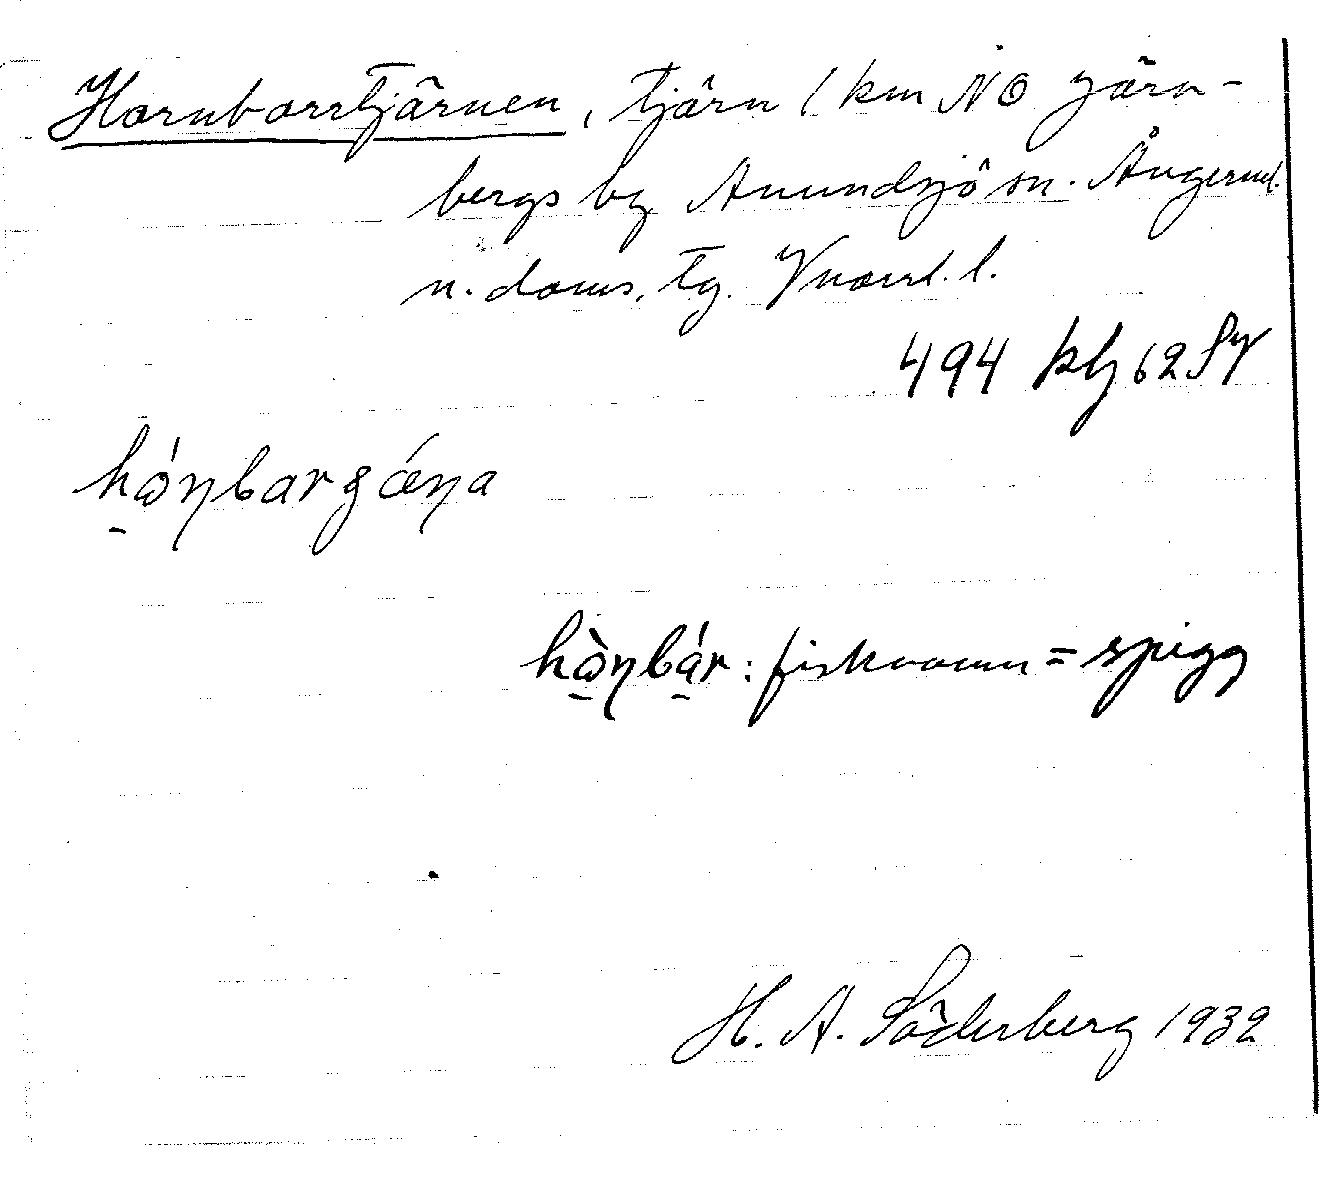 Hornborrtjärnen, tjärn 1 km NO Järn-
bergs by Anundsjö sn. Ångerml.
n. doms. tg. Vnorrl. l.
494 kbl 62 SV
hó̱ɳbarʒǽɳa
hò̱ɳbá̱r: fisknamn = spigg
H. A. Söderberg 1932